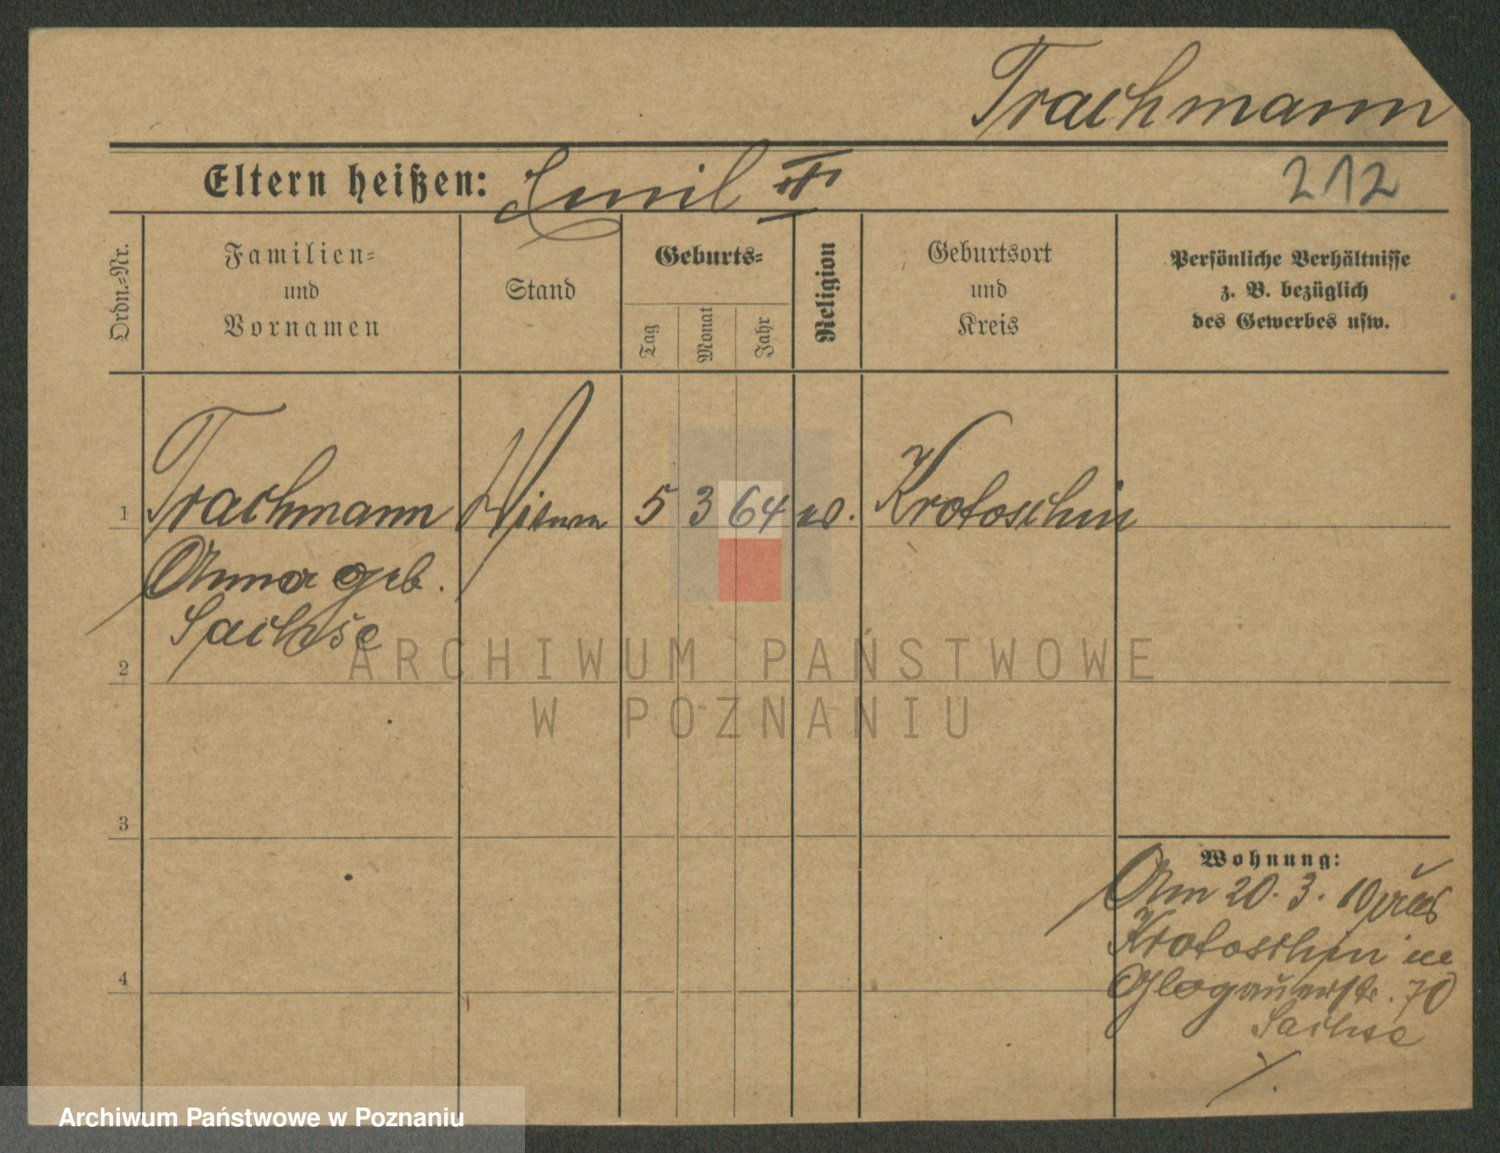 Trachmann
Eltern heißen: Emil
212
Ordn.-Nr.
Familien-
und
Vornamen
Stand
Geburts-
Tag
Monat
Jahr
Religion
Geburtsort
und
Kreis
Persönliche Verhältnisse
z. B. bezüglich
des Gewerbes usw.
1 Trachmann 5 3 64 Krotoschin
Anna geb.
Sachse
2
3
4
Wohnung:
Am 20. 3. 10
Krotoschin in
Glogauerstr. 70
Sachse
ARCHIWUM PAŃSTWOWE
W POZNANIU
Archiwum Państwowe w Poznaniu